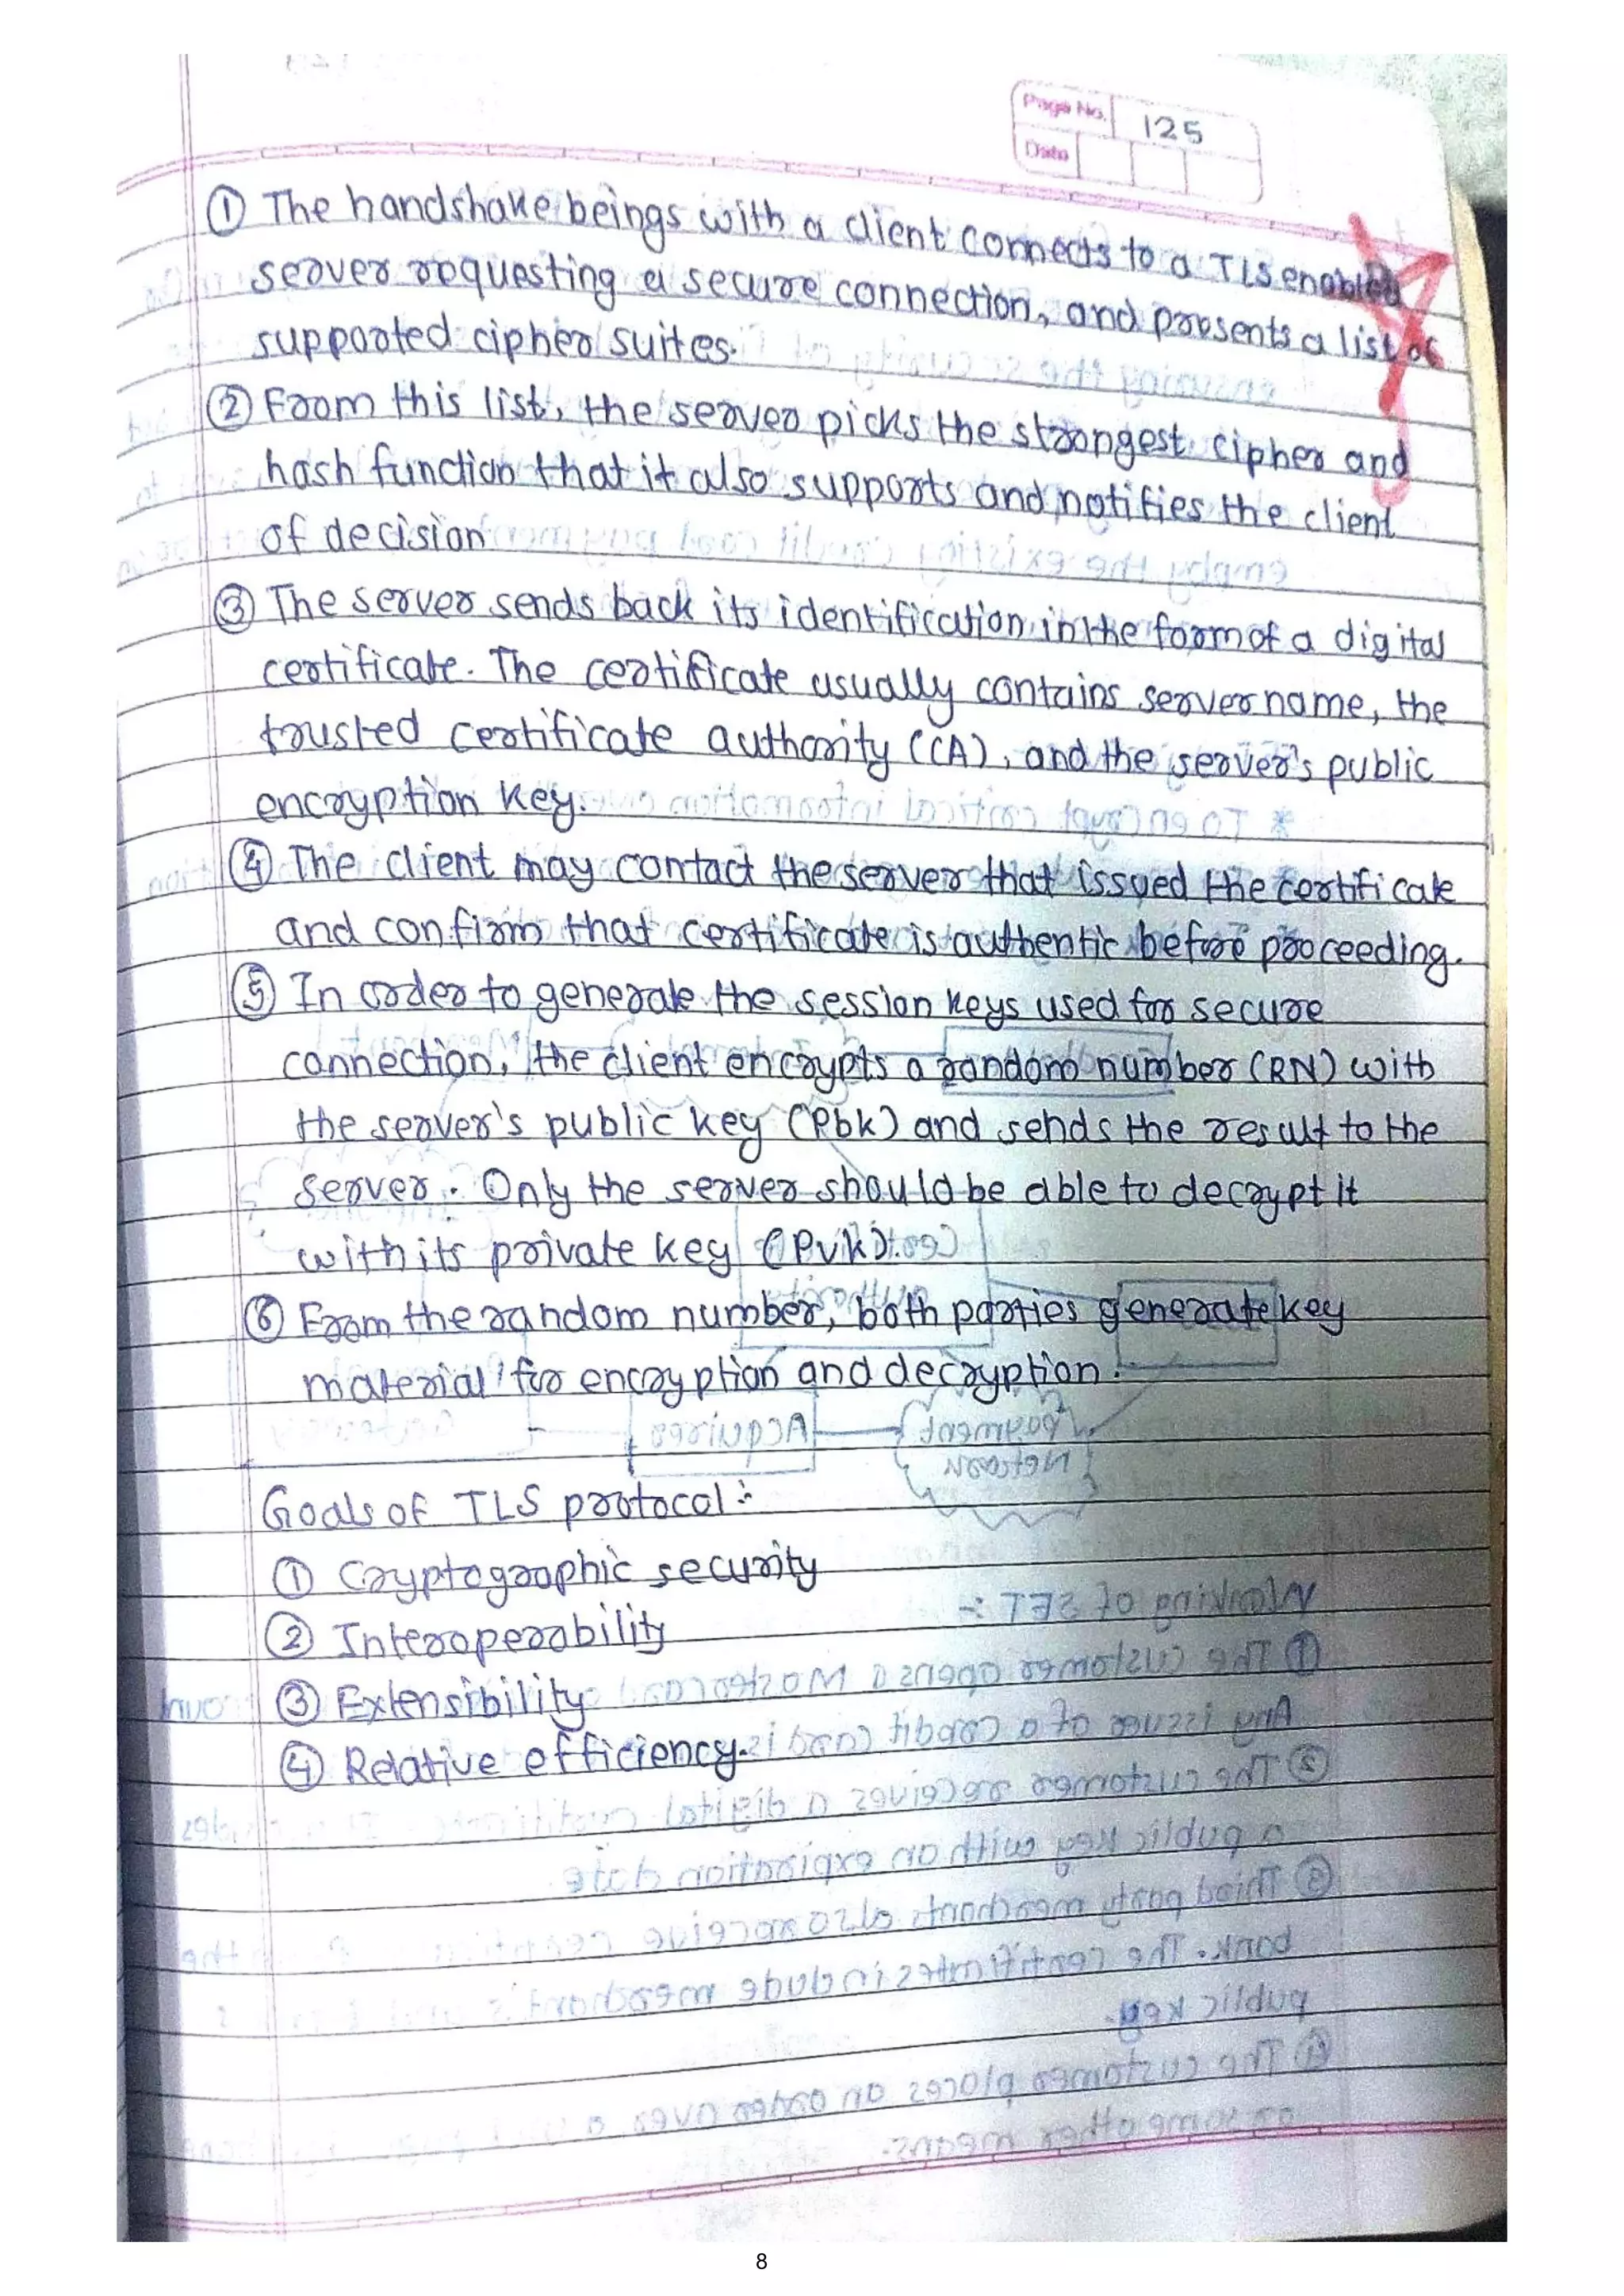 Page No. 125
Date
① The handshake beings with a client connects to a TLS enabled
server requesting a secure connection, and presents a list of
supported cipher suites.
② From this list, the server picks the strongest cipher and
hash function that it also supports and notifies the client
of decision
③ The server sends back its identification in the form of a digital
certificate. The certificate usually contains server name, the
trusted certificate authority (CA), and the server's public
encryption key.
④ The client may contact the server that issued the certificate
and confirm that certificate is authentic before proceeding.
⑤ In order to generate the session keys used for secure
connection, the client encrypts a random number (RN) with
the server's public key (Pbk) and sends the result to the
server. Only the server should be able to decrypt it
with its private key (Pvk).
⑥ From the random number, both parties generate key
material for encryption and decryption.
Goals of TLS protocol :-
① Cryptographic security
② Interoperability
③ Extensibility
④ Relative efficiency.
8